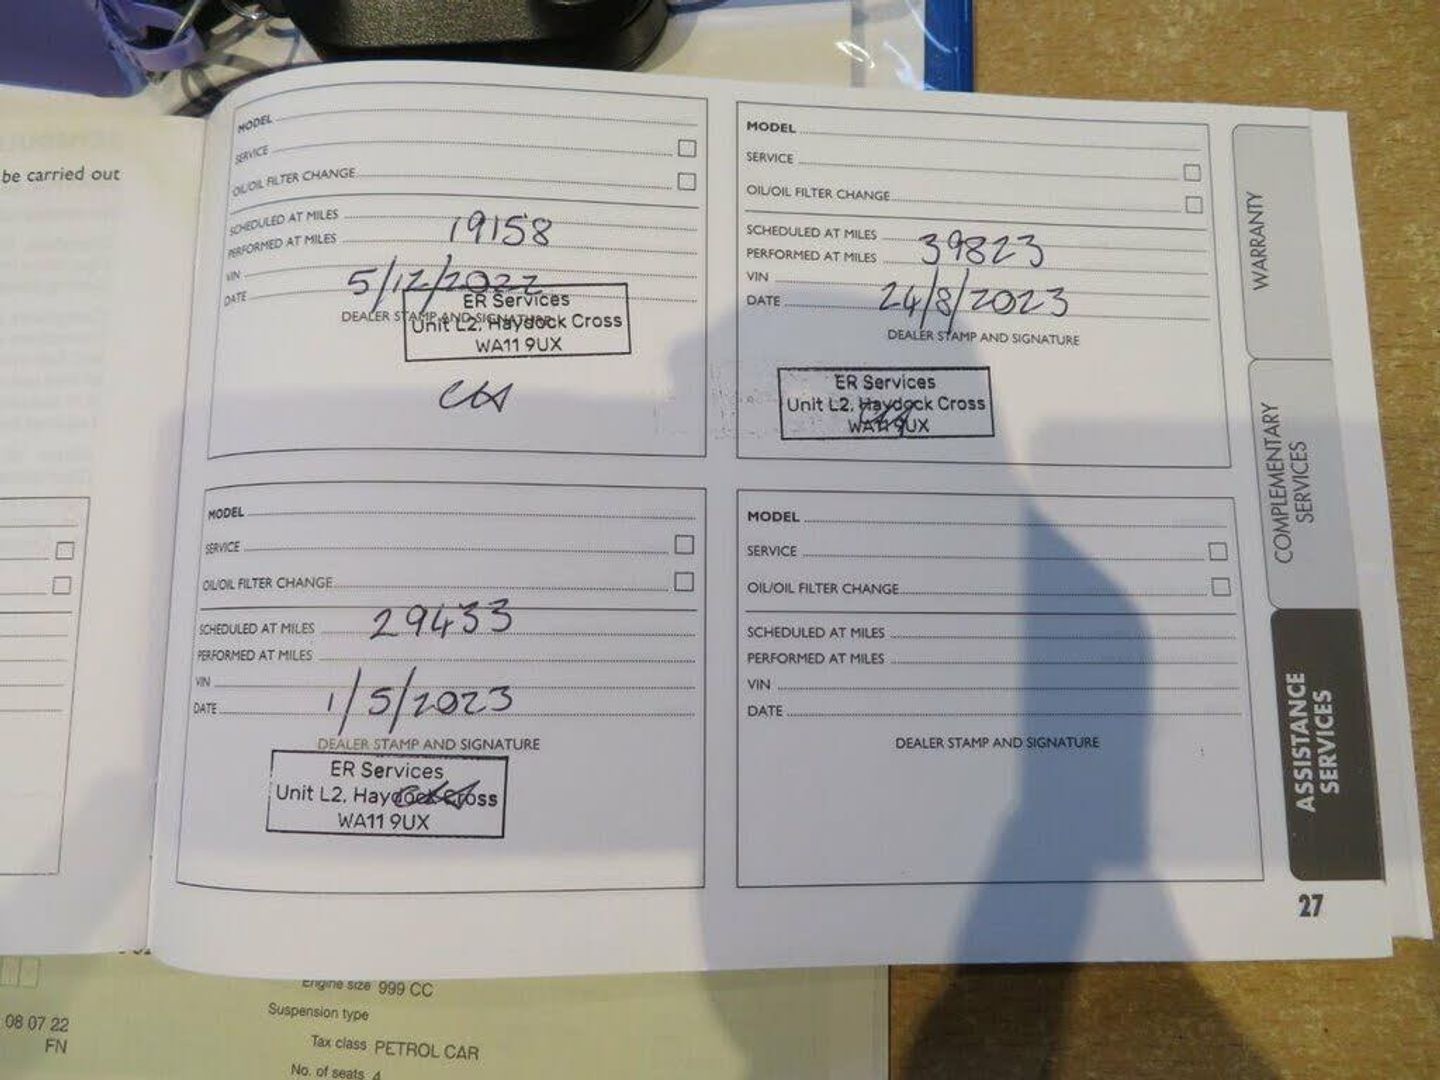 be carried out
MODEL
SERVICE
OIL/OIL FILTER CHANGE
SCHEDULED AT MILES
PERFORMED AT MILES 19158
VIN
DATE 5/12/2022
DEALER STAMP AND SIGNATURE
ER Services
Unit L2, Haydock Cross
WA11 9UX
MODEL
SERVICE
OIL/OIL FILTER CHANGE
SCHEDULED AT MILES
PERFORMED AT MILES 39823
VIN
DATE 24/8/2023
DEALER STAMP AND SIGNATURE
ER Services
Unit L2, Haydock Cross
WA11 9UX
MODEL
SERVICE
OIL/OIL FILTER CHANGE
SCHEDULED AT MILES 29433
PERFORMED AT MILES
VIN
DATE 1/5/2023
DEALER STAMP AND SIGNATURE
ER Services
Unit L2, Haydock Cross
WA11 9UX
MODEL
SERVICE
OIL/OIL FILTER CHANGE
SCHEDULED AT MILES
PERFORMED AT MILES
VIN
DATE
DEALER STAMP AND SIGNATURE
WARRANTY
COMPLEMENTARY
SERVICES
ASSISTANCE
SERVICES
27
Engine size 999 CC
Suspension type
Tax class PETROL CAR
No. of seats 4
08 07 22
FN